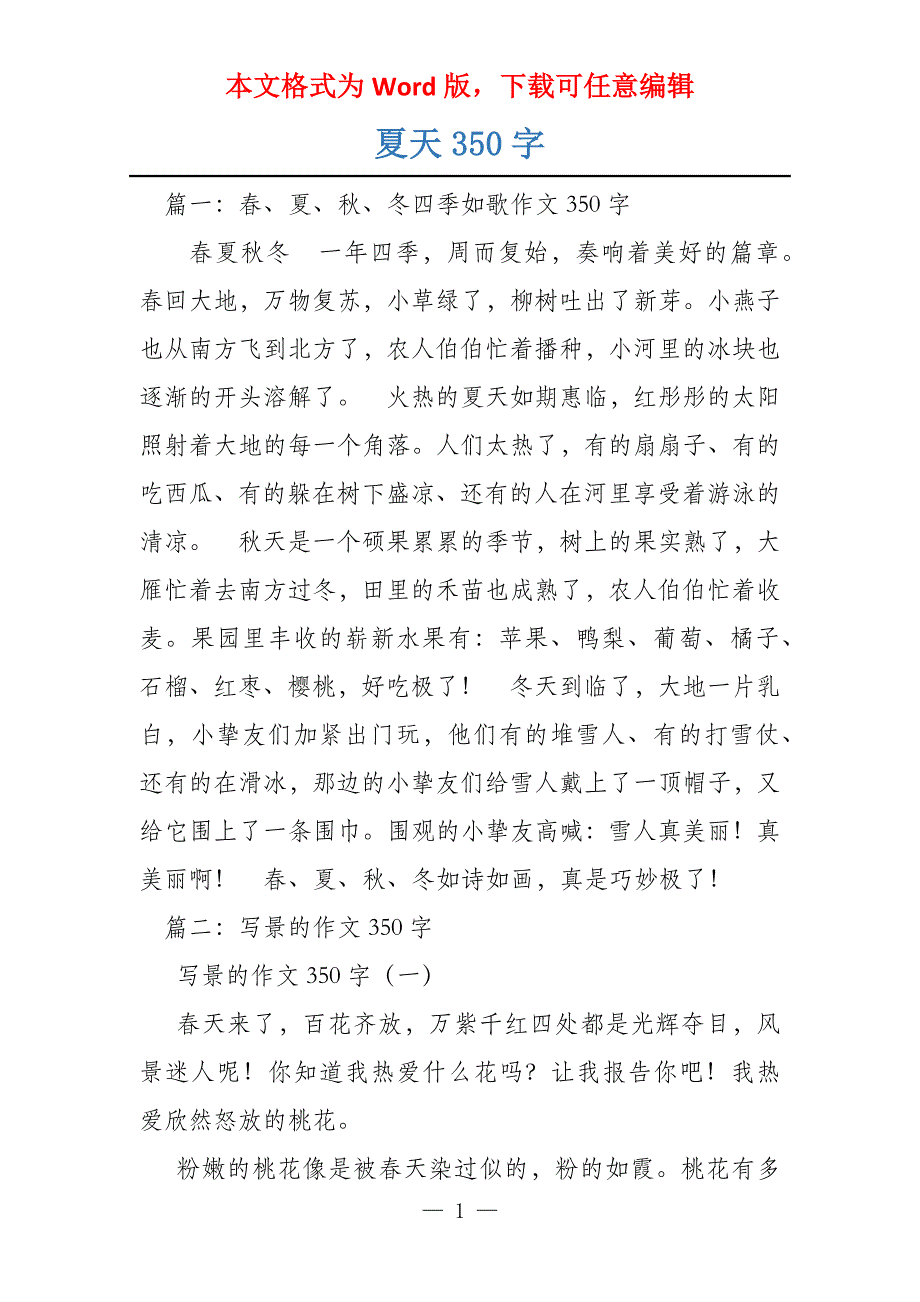 本文格式为 Word 版，下载可任意编辑
夏天 350 字
篇一：春、夏、秋、冬四季如歌作文 350 字
春夏秋冬　一年四季，周而复始，奏响着美好的篇章。
春回大地，万物复苏，小草绿了，柳树吐出了新芽。小燕子
也从南方飞到北方了，农人伯伯忙着播种，小河里的冰块也
逐渐的开头溶解了。　火热的夏天如期惠临，红彤彤的太阳
照射着大地的每一个角落。人们太热了，有的扇扇子、有的
吃西瓜、有的躲在树下盛凉、还有的人在河里享受着游泳的
清凉。　秋天是一个硕果累累的季节，树上的果实熟了，大
雁忙着去南方过冬，田里的禾苗也成熟了，农人伯伯忙着收
麦。果园里丰收的崭新水果有：苹果、鸭梨、葡萄、橘子、
石榴、红枣、樱桃，好吃极了！　冬天到临了，大地一片乳
白，小挚友们加紧出门玩，他们有的堆雪人、有的打雪仗、
还有的在滑冰，那边的小挚友们给雪人戴上了一顶帽子，又
给它围上了一条围巾。围观的小挚友高喊：雪人真美丽！真
美丽啊！　春、夏、秋、冬如诗如画，真是巧妙极了！
篇二：写景的作文 350 字
写景的作文 350 字（一）
春天来了，百花齐放，万紫千红四处都是光辉夺目，风
景迷人呢！你知道我热爱什么花吗？让我报告你吧！我热
爱欣然怒放的桃花。
粉嫩的桃花像是被春天染过似的，粉的如霞。桃花有多
— 1 —